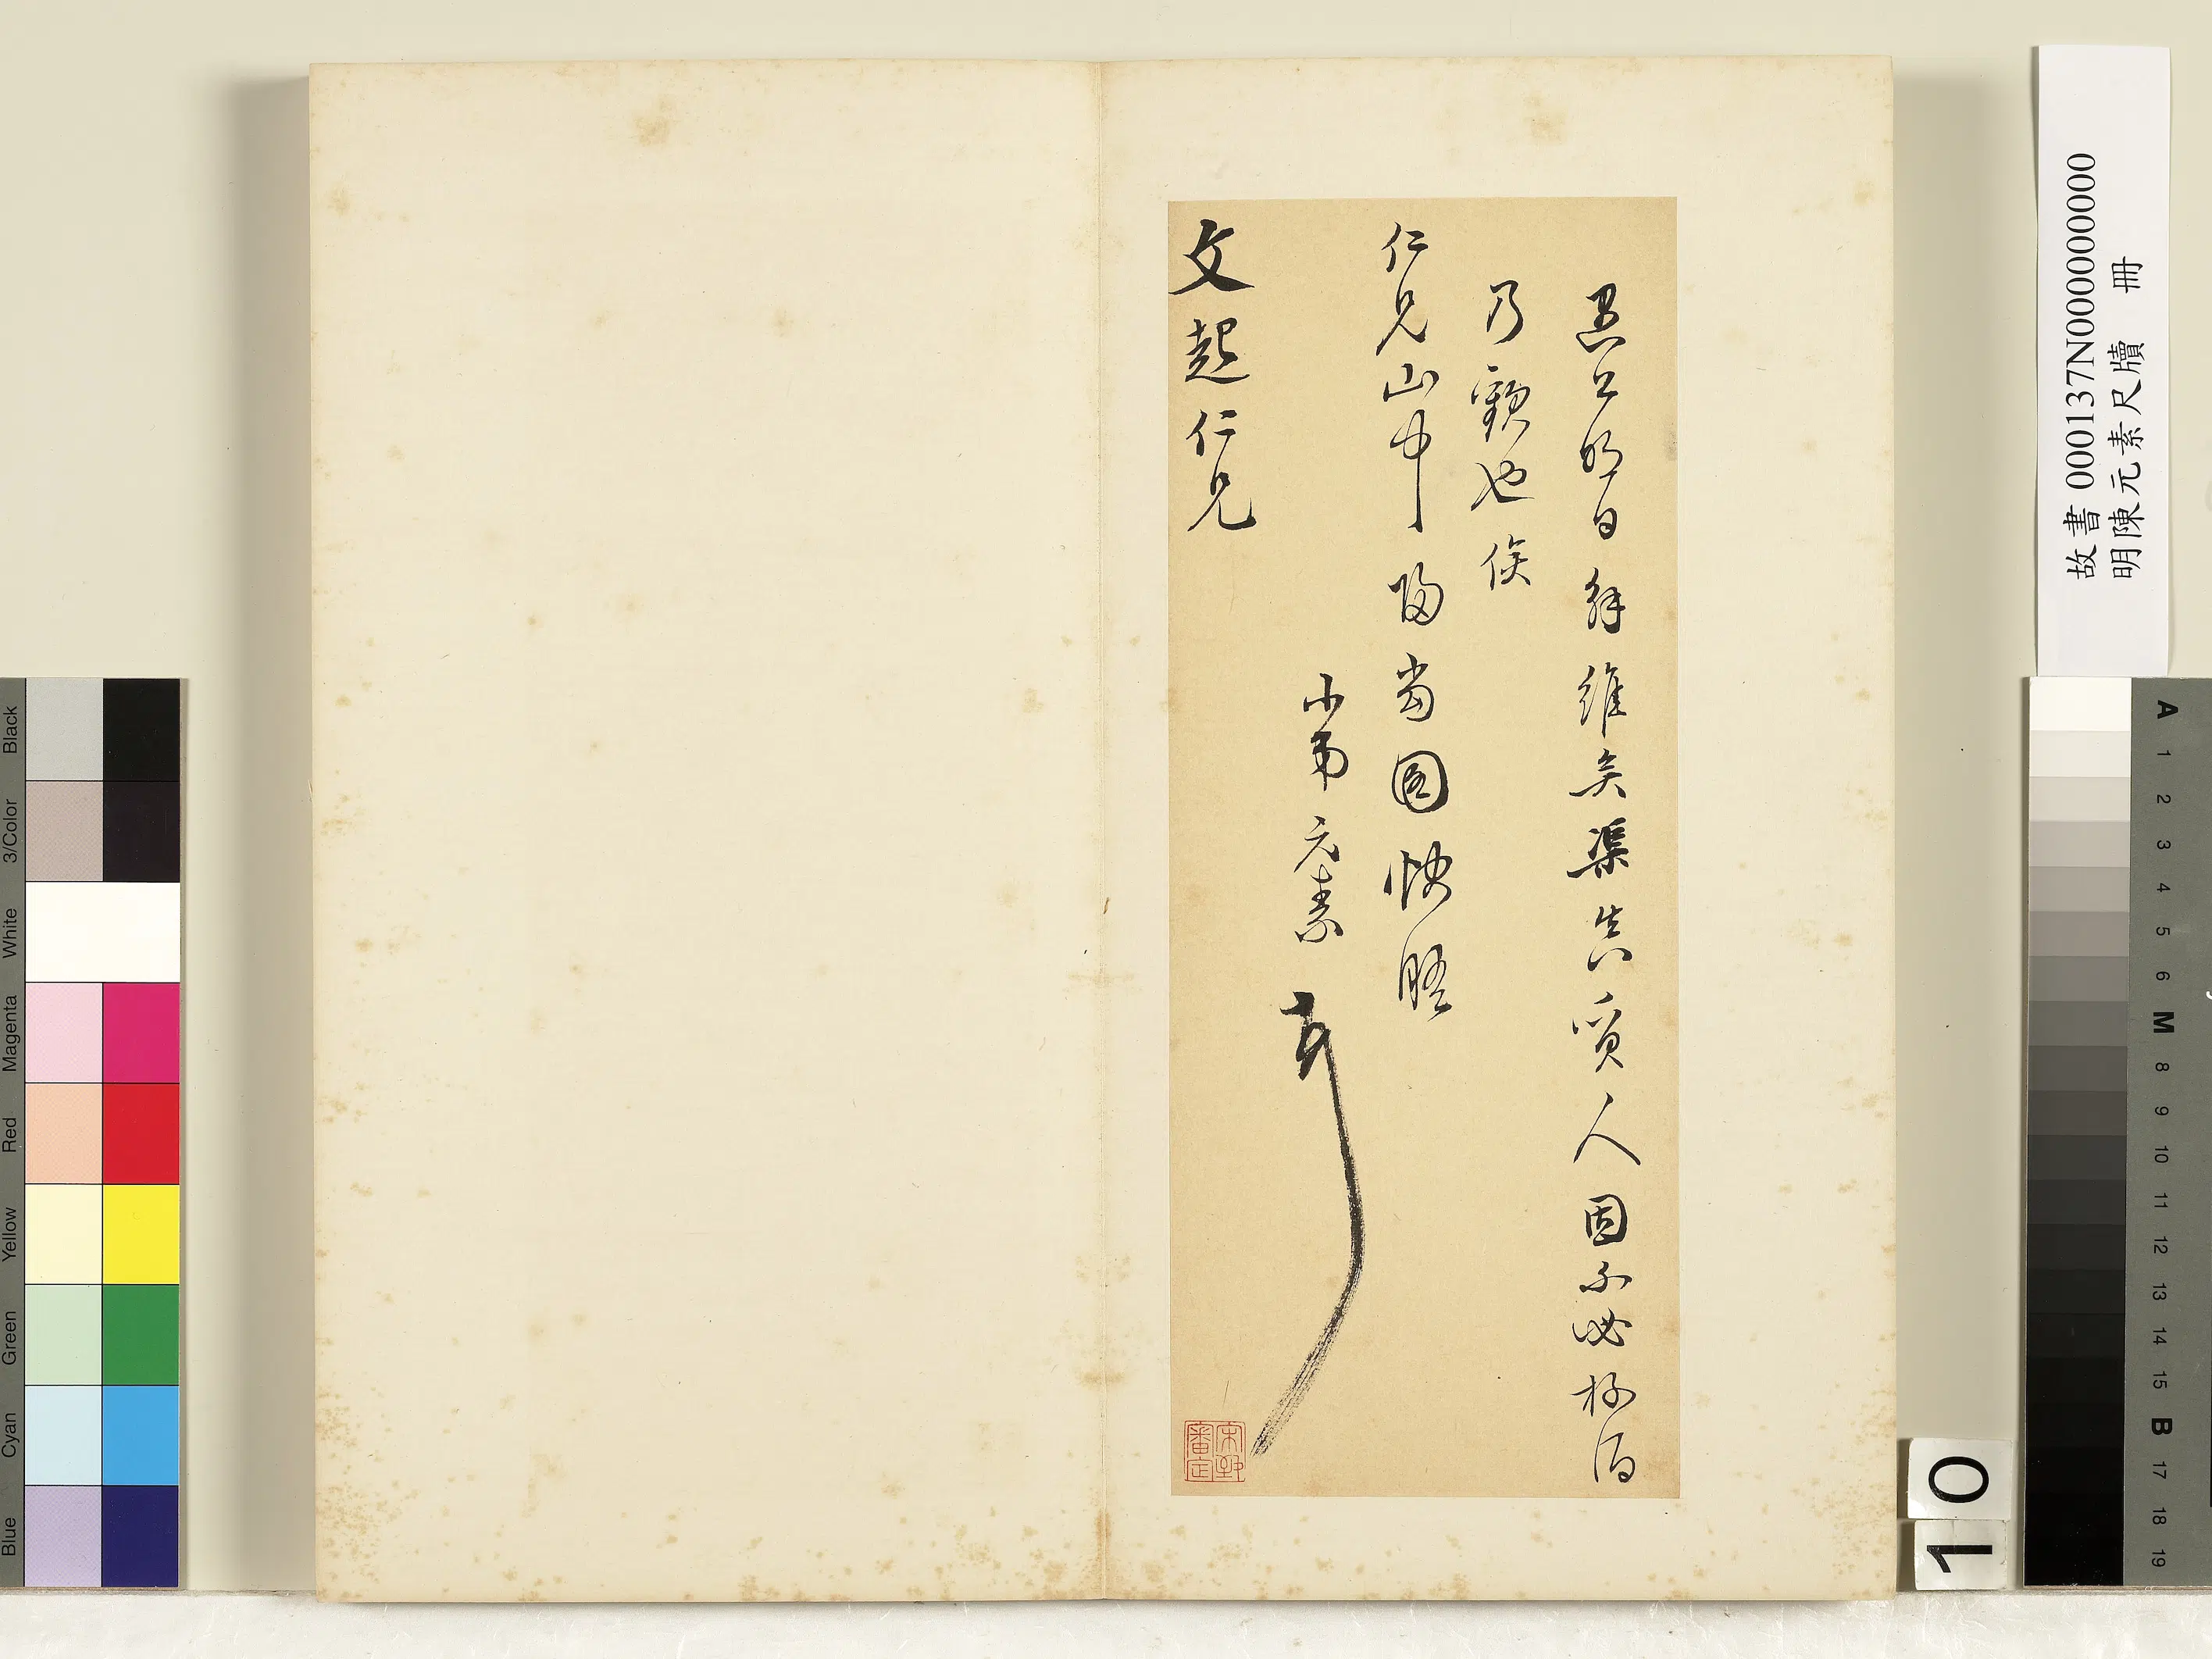 愚公明日解維矣渠真質人固不必極酒
乃歡也俟
仁兄山中歸當圖快晤
小弟元素
文起仁兄
宋致審定
故書 000137N000000000
明陳元素尺牘 冊
10
Black
3/Color
White
Magenta
Red
Yellow
Green
Cyan
Blue
A
1
2
3
4
5
6
M
8
9
10
11
12
13
14
15
B
17
18
19